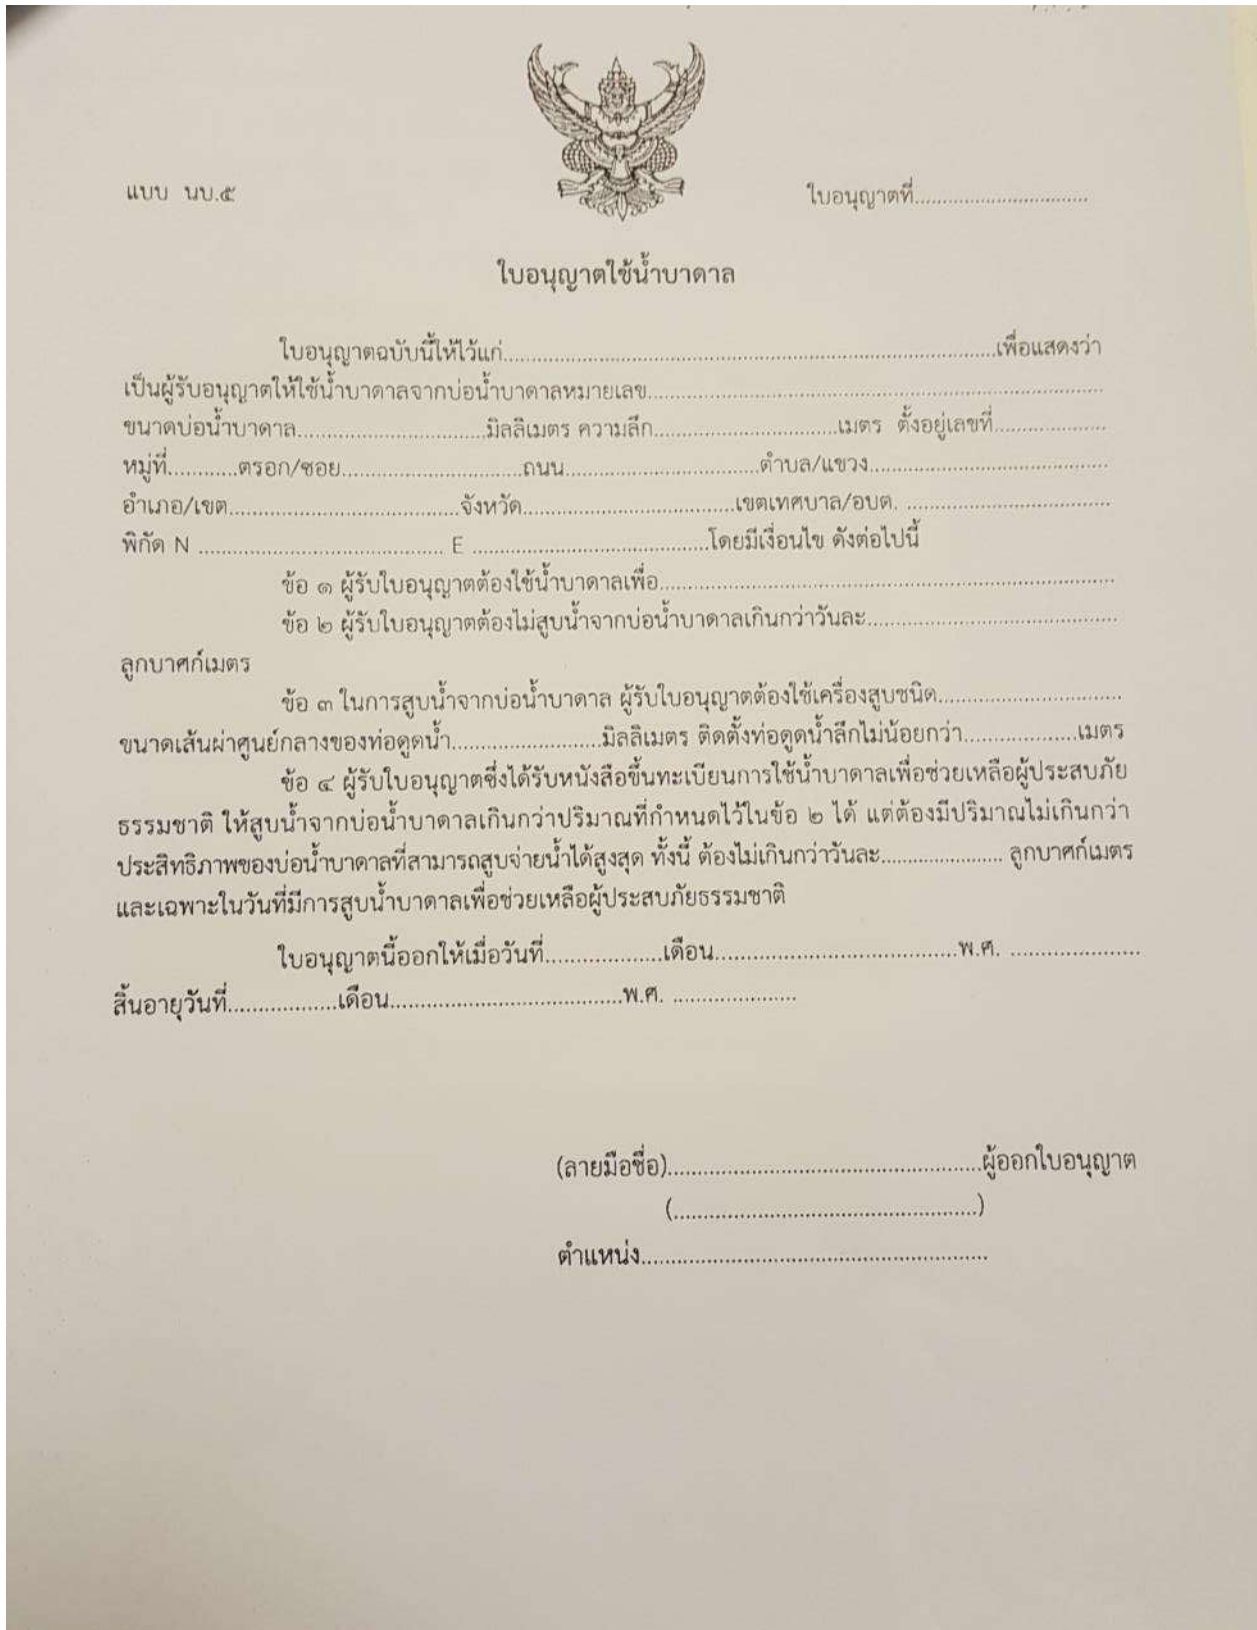 แบบ นบ.๕
ใบอนุญาตที่................................
ใบอนุญาตใช้น้ำบาดาล
ใบอนุญาตฉบับนี้ให้ไว้แก่................................................................................เพื่อแสดงว่า
เป็นผู้รับอนุญาตให้ใช้น้ำบาดาลจากบ่อน้ำบาดาลหมายเลข................................................................................
ขนาดบ่อน้ำบาดาล................................มิลลิเมตร ความลึก................................เมตร ตั้งอยู่เลขที่....................
หมู่ที่............ตรอก/ซอย................................ถนน................................ตำบล/แขวง........................................
อำเภอ/เขต........................................จังหวัด....................................เขตเทศบาล/อบต. ....................................
พิกัด N .......................................... E ........................................โดยมีเงื่อนไข ดังต่อไปนี้
ข้อ ๑ ผู้รับใบอนุญาตต้องใช้น้ำบาดาลเพื่อ................................................................................
ข้อ ๒ ผู้รับใบอนุญาตต้องไม่สูบน้ำจากบ่อน้ำบาดาลเกินกว่าวันละ............................................
ลูกบาศก์เมตร
ข้อ ๓ ในการสูบน้ำจากบ่อน้ำบาดาล ผู้รับใบอนุญาตต้องใช้เครื่องสูบชนิด................................
ขนาดเส้นผ่าศูนย์กลางของท่อดูดน้ำ.........................มิลลิเมตร ติดตั้งท่อดูดน้ำลึกไม่น้อยกว่า...................เมตร
ข้อ ๔ ผู้รับใบอนุญาตซึ่งได้รับหนังสือขึ้นทะเบียนการใช้น้ำบาดาลเพื่อช่วยเหลือผู้ประสบภัย
ธรรมชาติ ให้สูบน้ำจากบ่อน้ำบาดาลเกินกว่าปริมาณที่กำหนดไว้ในข้อ ๒ ได้ แต่ต้องมีปริมาณไม่เกินกว่า
ประสิทธิภาพของบ่อน้ำบาดาลที่สามารถสูบจ่ายน้ำได้สูงสุด ทั้งนี้ ต้องไม่เกินกว่าวันละ..................... ลูกบาศก์เมตร
และเฉพาะในวันที่มีการสูบน้ำบาดาลเพื่อช่วยเหลือผู้ประสบภัยธรรมชาติ
ใบอนุญาตนี้ออกให้เมื่อวันที่...................เดือน........................................พ.ศ. ......................
สิ้นอายุวันที่..................เดือน.......................................พ.ศ. .....................
(ลายมือชื่อ)....................................................ผู้ออกใบอนุญาต
(...................................................)
ตำแหน่ง..........................................................